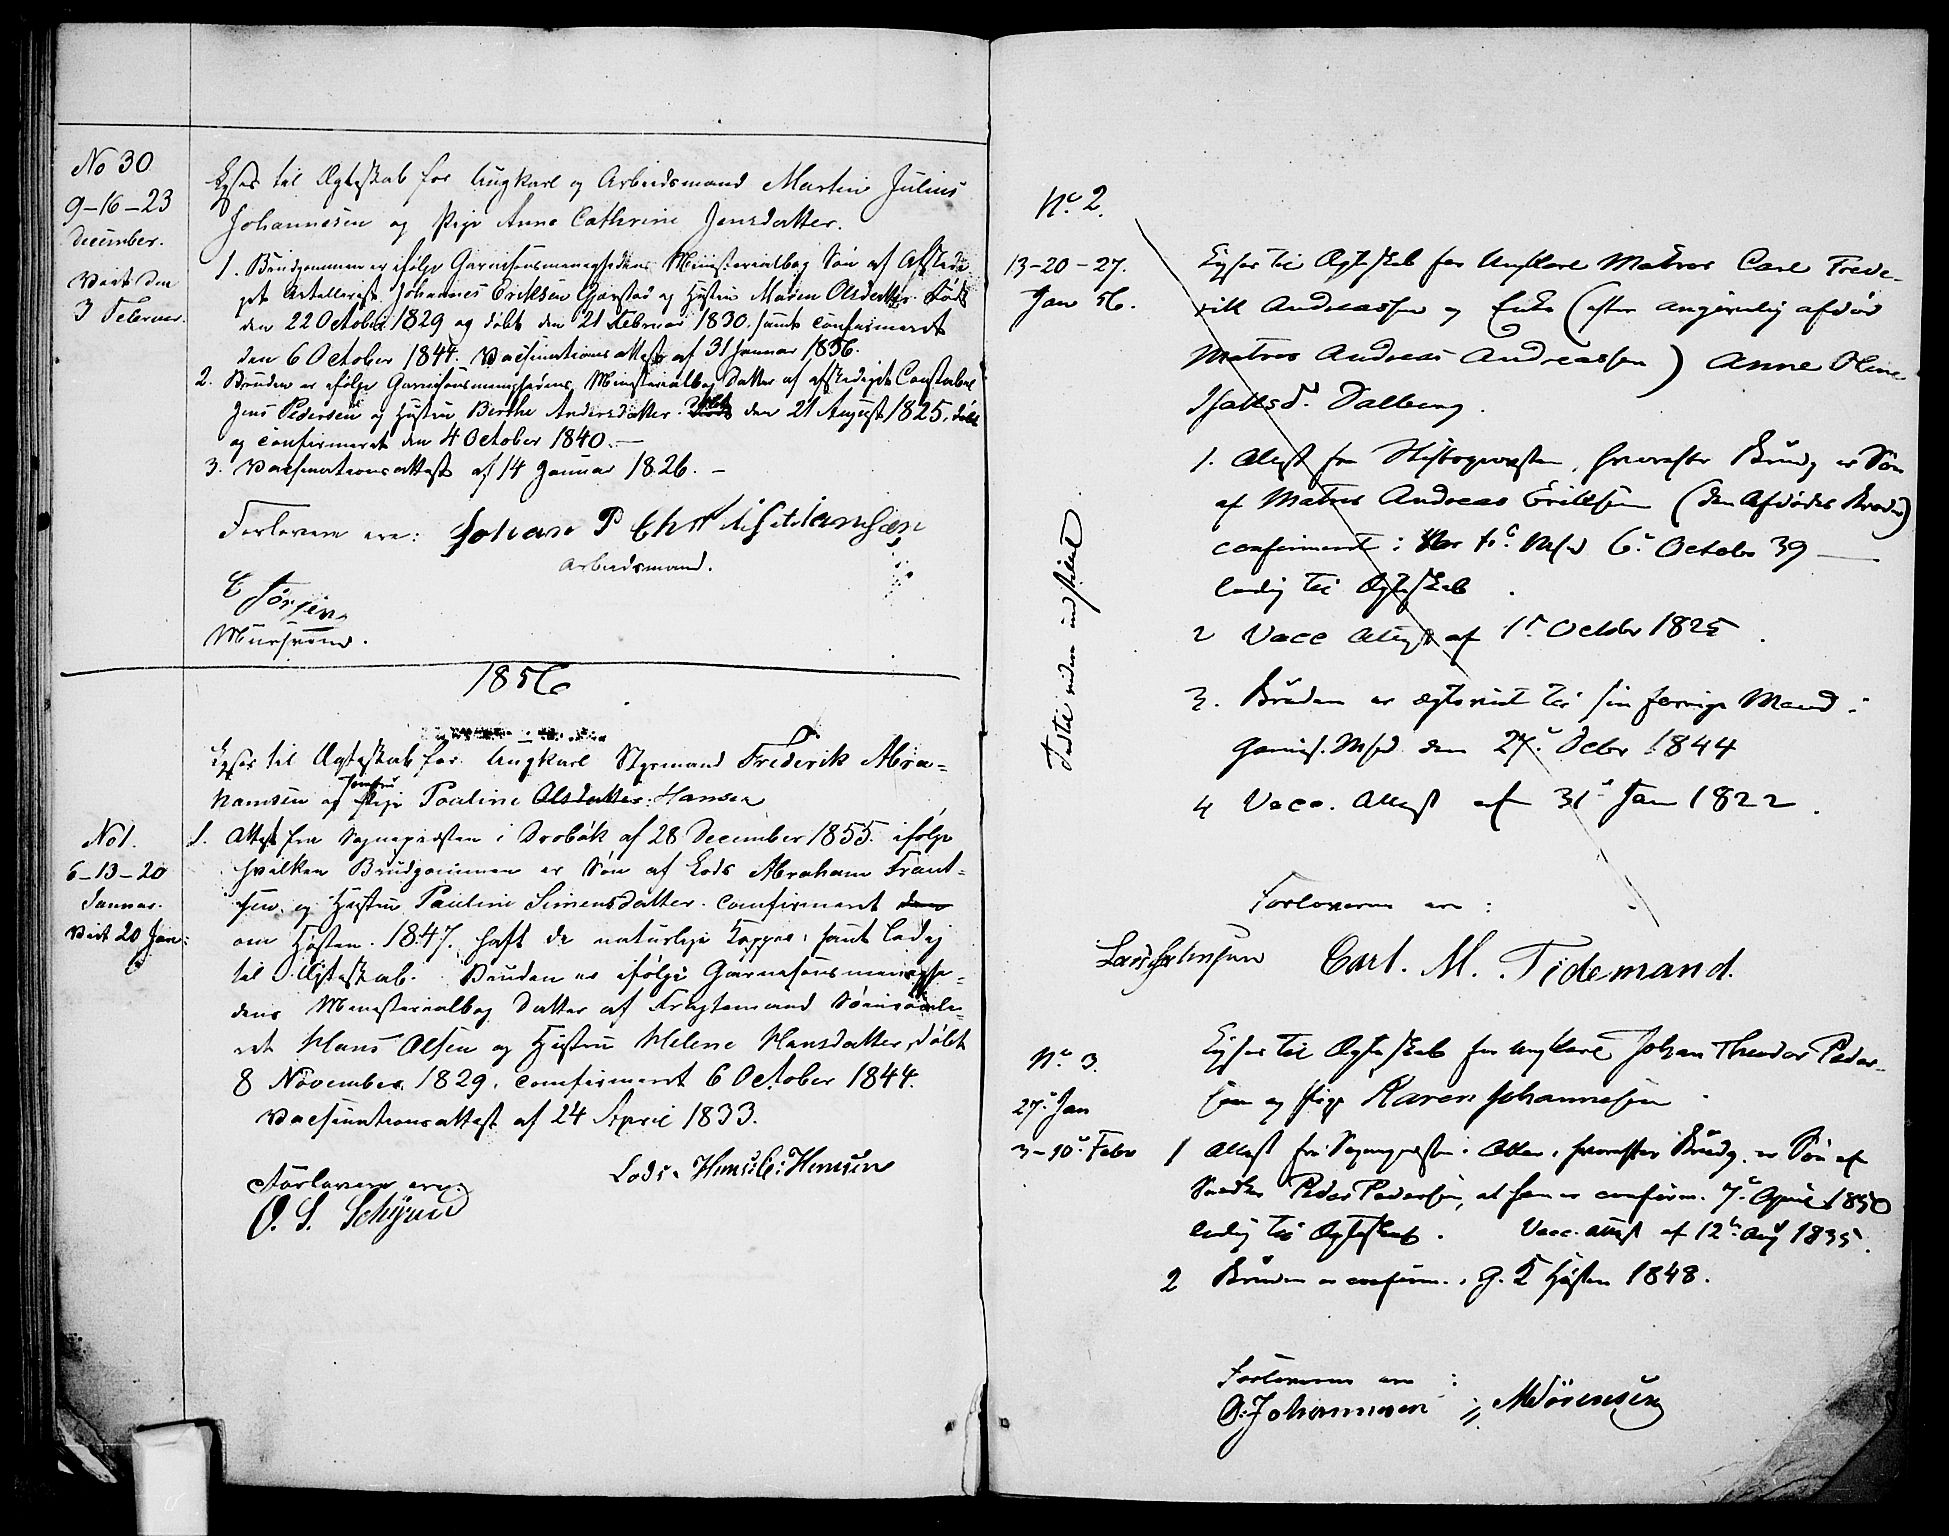 No 30
9-16-23
December.
Viet den
3 Februar.
Lyses til Ægteskab for Ungkarl og Arbeidsmand Martin Julius
Johannesen og Pige Anne Cathrine Jensdatter.
1. Brudgommen er ifølge Garnisonsmenighedens Ministerialbog Søn af Afskedi-
get Artellerist Johannes Eriksen Gjørstad og Hustru Maren Olsdatter. Født
den 22 October 1829 og døbt den 21 Februar 1830. samt confirmeret
den 6 October 1844. Vacsinationsattest af 31 Januar 1856.
2. Bruden er ifølge Garnisonsmenighedens Ministerialbog Datter af afskediget Constabel
Jens Pedersen og Hustru Birthe Andersdatter. den 21 August 1825, døbt
og confirmeret den 4 October 1840.—
3. Vacsinationsattest af 14 Januar 1826. –
Forlovere ere: Johan P Christiansen
Arbeidsmand.
Murssvend.
1856
Lyses til Ægteskab for Ungkarl Styrmand Frederik Abra-
hamsen og Jomfru Pige Pauline Olsdatter. Hansen
No 1.
6-13-20
Januar.
Viet 20 Jan:
1. Attest fra Sognepræsten i Drøbak af 28 December 1855. ifølge
hvilken Brudgommen er Søn af Lods Abraham Frant-
sen, og Hustru Pauline Simensdatter. confirmeret den
om Høsten 1847. haft de naturlige Kopper, samt ledig
til Ægteskab. Bruden er ifølge Garnisonsmenighe-
dens Ministerialbog Datter af Fragtemand
Hans Olsen og Hustru Helene Hansdatter, døbt
8 November 1829, confirmeret 6 October 1844.
Vacsinationsattest af 24 April 1833.
Forlovere ere,
Lods. Hansen
O. S.
No 2.
13-20-27.
Jan 56.
Lyses til Ægteskab for Ungkarl Matros Carl Frede-
rik Andreassen og Enke (efter angivelig afdød
Matros Andreas Andreassen) Anne Oline
Isaksd. Dalberg.
1. Attest fra Stiftsprovsten, hvorefter Brudg er Søn
af Matros Andreas Eriksen (den Afdødes Broder)
confirmeret i Vor Fr. M/d 6. Octobr 39 —
ledig til Ægteskab.
2 Vacc Attest af 1. Octobr 1825.
3. Bruden er ægteviet til sin forrige Mand i
Garnis. M/d den 27. Octbr 1844
4 Vacc. Attest af 31. Jan 1822.
Forloverne ere:
Carl. M. Tidemand.
No 3.
27. Jan
3-10. Febr
Lyses til Ægteskab for Ungkarl Johan Theodor Peder-
sen og Pige Karen Johannesen.
1 Attest fra Sognepræsten i Aker, hvorefter Brudg. er Søn af
Snedker Peder Pedersen, at han er confirm. 7. April 1850
ledig til Ægteskab. Vacc. attest af 12. Aug 1835.
2 Bruden er confirm. i G. K Høsten 1848.
Forloverne ere:
O. Johannesen M Sörensen